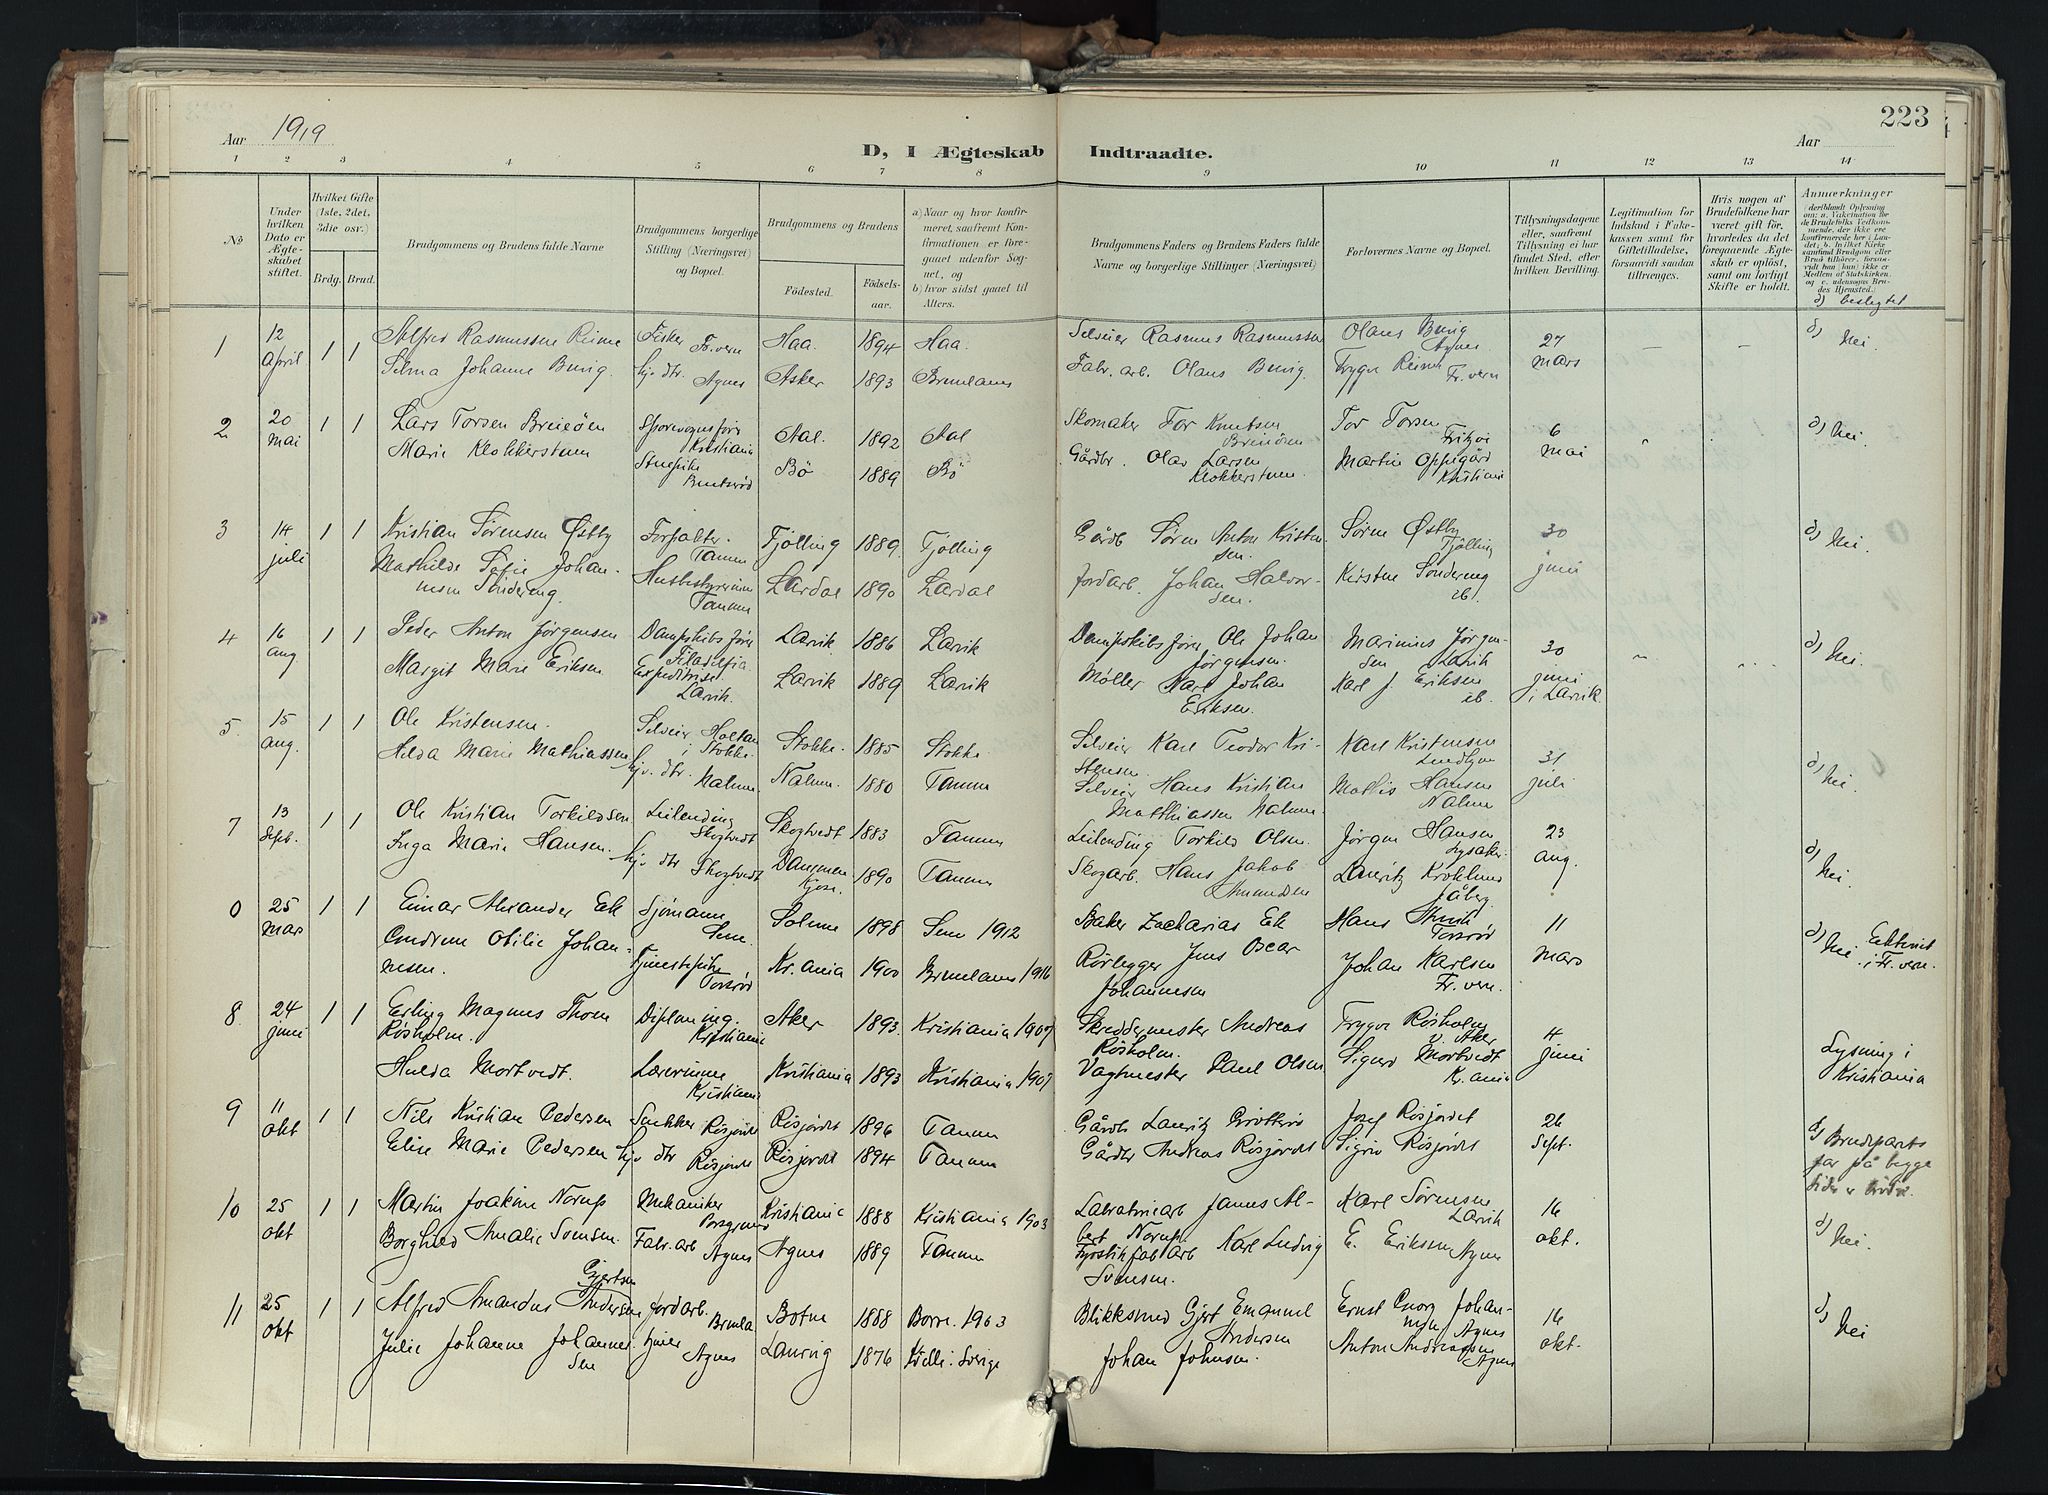 223
Aar 1919
D, I Ægteskab Indtraadte.
Aar
1 2 3 4 5 6 7 8 9 10 11 12 13 14
No
Under hvilken Dato er Ægteskabet stiftet.
Hvilket Gifte (1ste, 2det, 3die osv.)
Brdg. Brud.
Brudgommens og Brudens fulde Navne
Brudgommens borgerlige Stilling (Næringsvei) og Bopæl.
Brudgommens og Brudens
Fødested.
Fødselsaar.
a) Naar og hvor konfirmeret, saafremt Konfirmationen er foregaaet udenfor Sognet, og
b) hvor sidst gaaet til Alters.
Brudgommens Faders og Brudens Faders fulde Navne og borgerlige Stillinger (Næringsvei)
Forlovernes Navne og Bopæl.
Tillysningsdagene eller, saafremt Tillysning ei har fundet Sted, efter hvilken Bevilling.
Legitimation for Indskud i Enkekassen samt for Giftetilladelse, forsaavidt saadan tiltrænges.
Hvis nogen af Brudefolkene har været gift før, hvorledes da det foregaaende Ægteskab er opløst, samt om lovligt Skifte er holdt.
Anmærkninger
(deriblandt Oplysning om: a. Vakcination for de Brudefolks Vedkommende, der ikke ere konfirmerede her i Landet; b. hvilket Kirkesamfund Brudgom eller Brud tilhører, forsaavidt han (hun) ikke er Medlem af Statskirken, og c. udensogns Brudes Hjemsted.)
d) beslegtet
1 12 April 1 1 Alfred Rasmussen Reime Fisker Fr.vern Haa 1894 Haa. Selveier Rasmus Rasmussen Olaus Burig Agnes 27 mars – – d) Nei.
Selma Johanne Burig. hjv. dtr. Agnes Asker 1893 Brunlanes Fabr. arb. Olaus Burig. Trygve Reime Fr. vern
2 20 Mai 1 1 Lars Torsen Breieåen Sporvognsfører Kristiania Aal. 1892 Aal Skomaker Tor Knutsen Breieåen Tor Torsen Fritzøe 6 mai d) Nei
Marie Klokkerstuen Stuepike Bø 1889 Bø Gårdbr. Olav Larsen Klokkerstuen. Martin Oppegård Kristiania
3 14 juli 1 1 Kristian Sørensen Østby Forpakter. Tanum Tjølling 1889. Tjølling Gårdb Søren Anton Kristensen. Søren Østby Tjølling 30 juni d) Nei
Mathilde Sofie Johannesen Søndereng. Husbestyrerinne Tanum Lardal 1890 Lardal Jordarb. Johan Halvorsen. Kirsten Søndereng ib.
4 16 aug. 1 1 Peder Anton Jørgensen Dampskibsfører Filadelfia Larvik 1886 Larvik Dampskibsfører Ole Johan Jørgensen. Marinius Jørgensen Larvik 30 juni i Larvik d) Nei.
Margit Marie Eriksen Expeditrise. Larvik. Larvik 1889 Larvik Møller Karl Johan Eriksen. Karl J. Eriksen ib.
5 15 aug. 1 1 Ole Kristensen. Selveier Holtan i Stokke. Stokke. 1885 Stokke Selveier Karl Teodor Kristensen Karl Kristensen 31 juli d) Nei.
Hilda Marie Mathiassen hjv. dtr. Nalum. Nalum. 1880 Tanum Selveier Hans Kristian Matthiassen Nalum. Mathis Hansen Nalum
7 13 Sept. 1 1 Ole Kristian Torkildsen Leilending Skogtvedt Skogtvedt 1883 Tanum Leilending Torkild Olsen. Jørgen Hansen Lysaker. 23 aug. d) Nei.
Inga Marie Hansen. hjv. dtr Skogtvedt Dammen Kjose. 1890 Tanum Skogarb. Hans Jakob Amundsen Lauritz
0 25 Mar 1 1 Einar Alexander Ek Sjømann Sem. Solum 1898 Sem 1912 Baker Zacharias Ek Hans Torsrød 11 mars d) Nei i Fr. vern.
Otilie Johannesen. Tjenestepike Torsrød Kr. ania 1900 Brunlanes 1916 Rørlegger Jens Oscar Johannesen Johan Karlsen Fr. vern.
8. 24 juni 1 1 Erling Magnus Thom Røsholm. Dipl.ing. Kristiania Aker 1893. Kristiania 1907 Skreddermester Andreas Røsholm. Trygve Røsholm V. Aker 4 juni Lysning i Kristiania
Hulda Mortvedt. Lærerinne Kristiania Kristiania 1893 Kristiania 1907 Vagtmester Paul Olsen Sigurd Mortvedt Kr. ania
9 11 okt 1 1 Nils Kristian Pedersen Snekker Risjordet Risjordet 1896 Tanum Gårdb Lauritz Josef Risjordet 26 Sept. Brudeparets far på begge sider er brødre.
Elise Marie Pedersen hjv dtr Risjordet Risjordet 1894 Tanum Gårdbr Andreas Risjordet Sigrid Risjordet
10 25 okt 1 1 Martin Joakim Norup Mekaniker Porsgrund Kristiania 1888 Kristiania 1903 James Albert Norup. Karl Sørensen Larvik 16 okt. d) Nei.
Borghild Amalie Svensen. Fabr. arb Agnes Agnes 1889 Tanum Fyrstikfab arb Karl Ludvig Svensen. E. Eriksen Agnes
11 25 okt 1 1 Alfred Amandus Gjertsen Andersen jordarb. Brunla Botne 1888 Borre. 1903 Blikksmed Gjert Emanuel Andersen Ernst Georg Johannesen Agnes 16 okt. d) Nei
Julie Johanne Johannessen Agnes Laurvig 1876 Sverige Johan Johnsen. Anton Andreassen Agnes